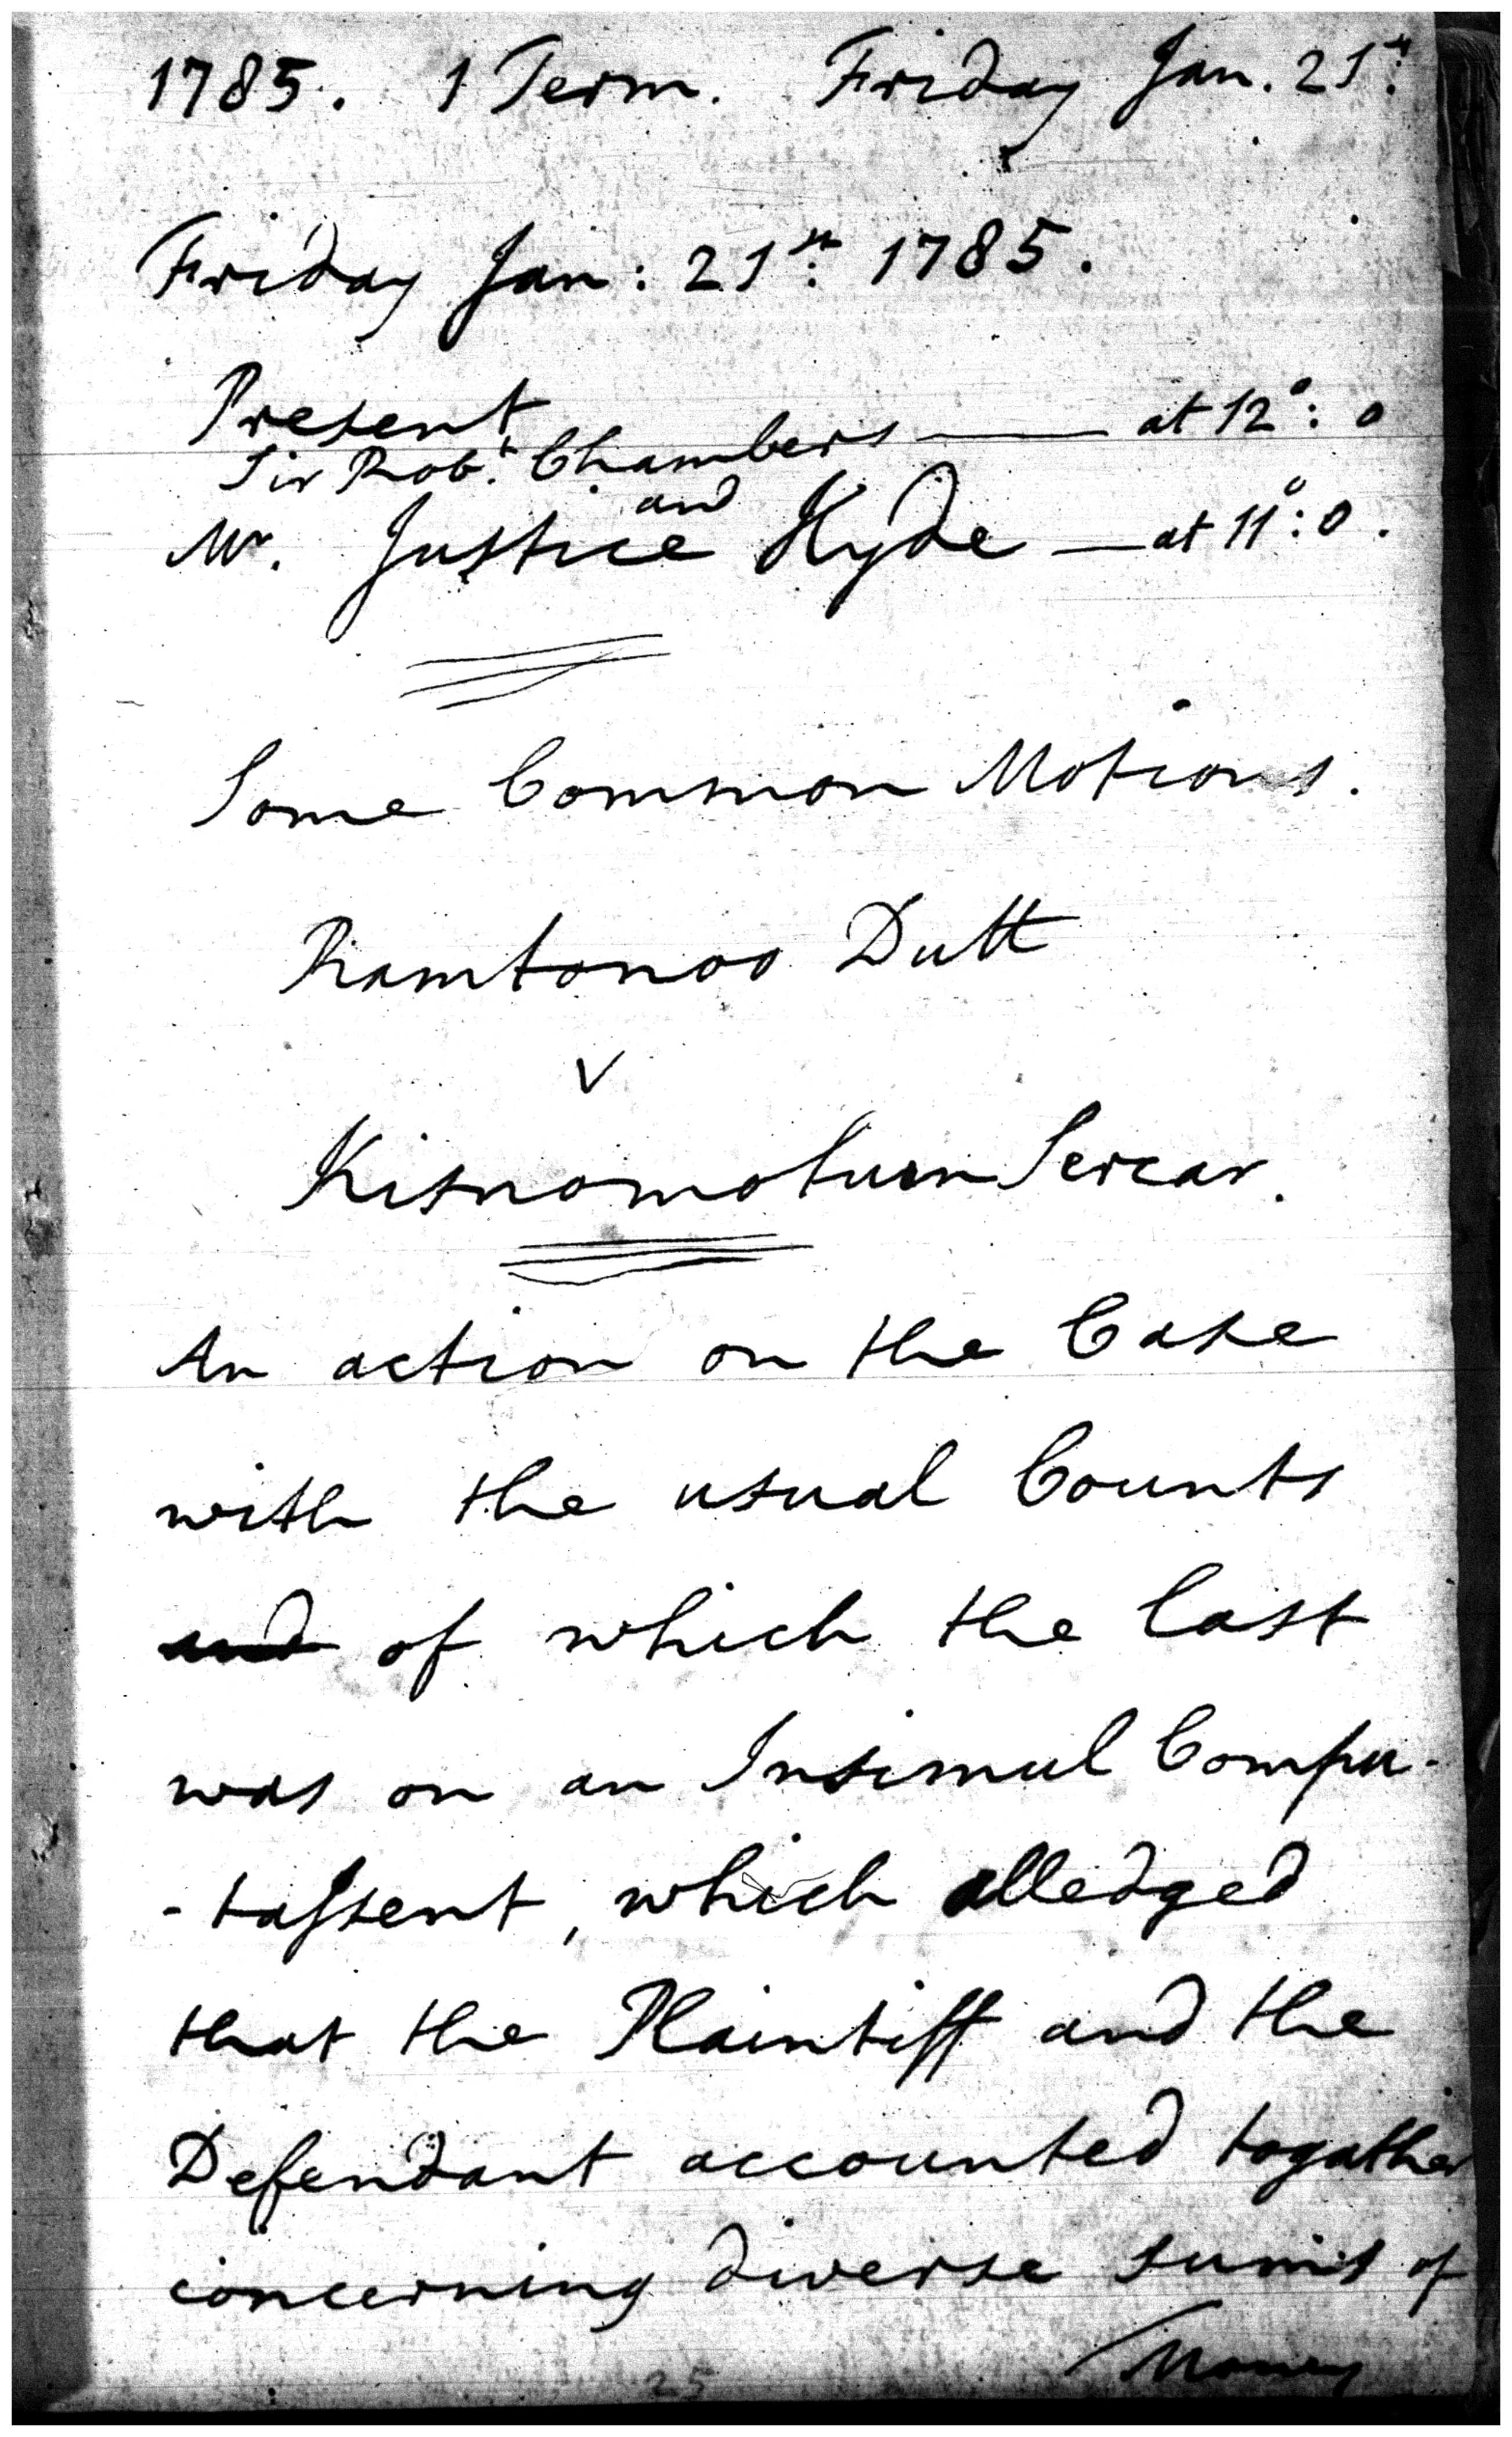 1785. 1 Term. Friday Jan. 21st.
Friday Jan: 21st: 1785.
Present
Sir Robt. Chambers — at 12°: 0
and
Mr. Justice Hyde — at 11°: 0.
Some Common Motions.
Ramtonoo Dutt
v
Kisnomohun Sercar.
An action on the Case
with the usual Counts
and of which the last
was on an Insimul Compu-
-tassent, which alledged
that the Plaintiff and the
Defendant accounted togather
concerning diverse sums of
Money
25